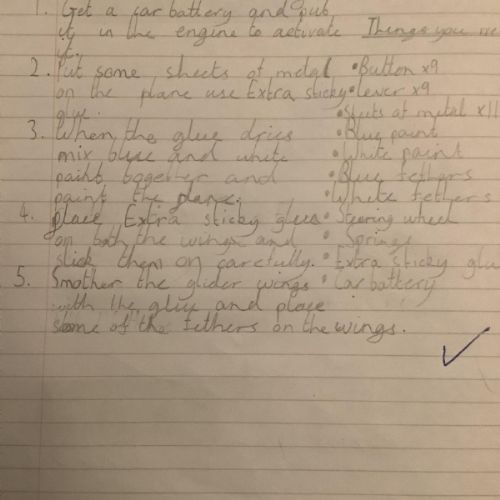 1. Get a car battery and put
it in the engine to activate
it.
2. Put some sheets of metal
on the plane use Extra sticky
glue.
3. When the glue dries
mix blue and white
paint together and
paint the plane.
4. place Extra sticky glue
on both the wings and
stick them on carefully.
5. Smother the glider wings
with the glue and place
some of the fethers on the wings.
Things you
• Button x9
• Lever x9
• Sheets of metal x11
• Blue paint
• White paint
• Blue fethers
• White fethers
• Steering wheel
• Springs
• Extra sticky glu
• Car battery